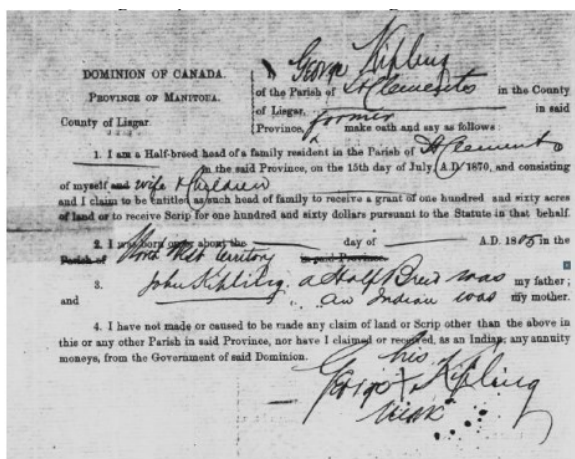 I, George Kipling
DOMINION OF CANADA.
PROVINCE OF MANITOBA.
County of Lisgar.
of the Parish of St Clements in the County
of Lisgar, farmer in said
Province, make oath and say as follows:
1. I am a Half-breed head of a family resident in the Parish of St Clements
in the said Province, on the 15th day of July, A.D. 1870, and consisting
of myself and wife & Children
and I claim to be entitled as such head of family to receive a grant of one hundred and sixty acres
of land or to receive Scrip for one hundred and sixty dollars pursuant to the Statute in that behalf.
2. I was born on or about the day of A.D. 1805 in the
Parish of North West Territory in said Province.
3. John Kipling a Half Breed was my father;
and an Indian was my mother.
4. I have not made or caused to be made any claim of land or Scrip other than the above in
this or any other Parish in said Province, nor have I claimed or received, as an Indian, any annuity
moneys, from the Government of said Dominion.
his
George X Kipling
mark